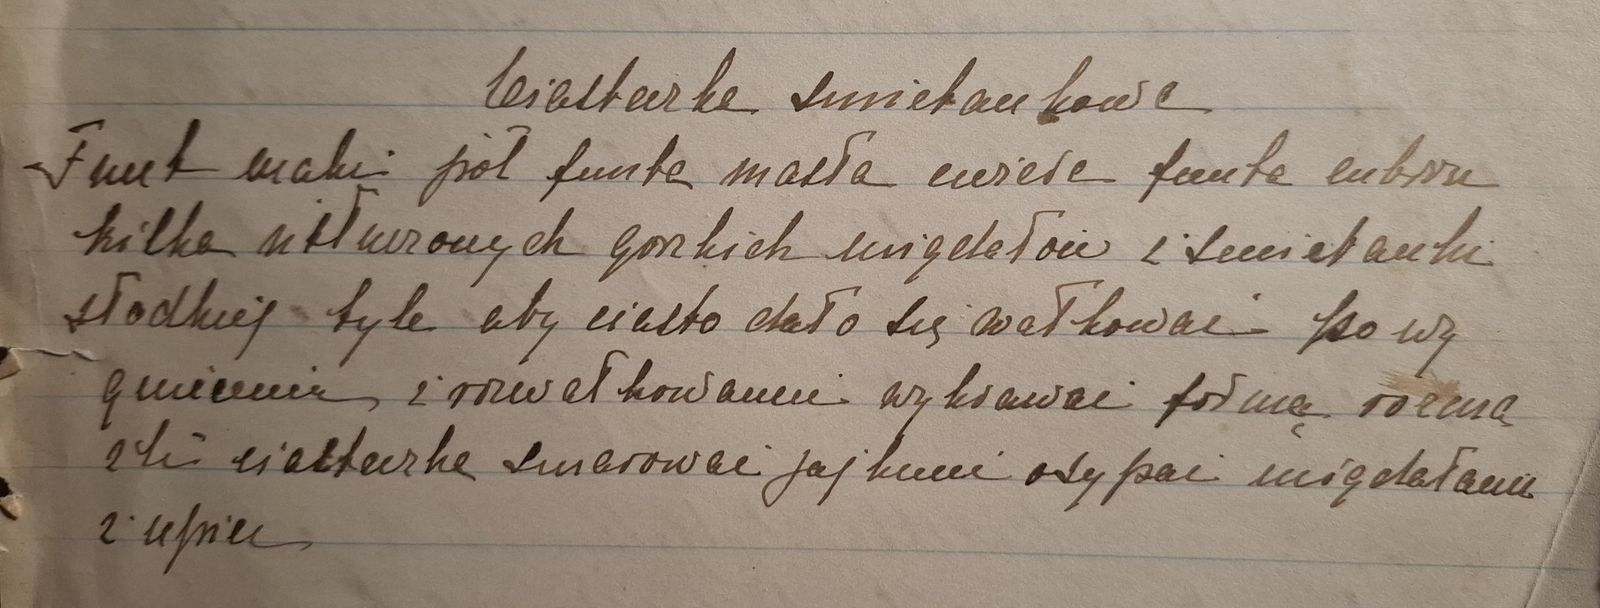 Ciasteczka smietankowe
Funt mąki pół funta masła cwierc funta cukru
kilka utłuczonych gorzkich migdałow i smietanki
słodkiej tyle aby ciasto dało się wałkowac po wy
gnieceniu i rozwałkowaniu wykrawac formą rożną
ciasteczka smarowac jajkiem osypac migdałami
i upiec